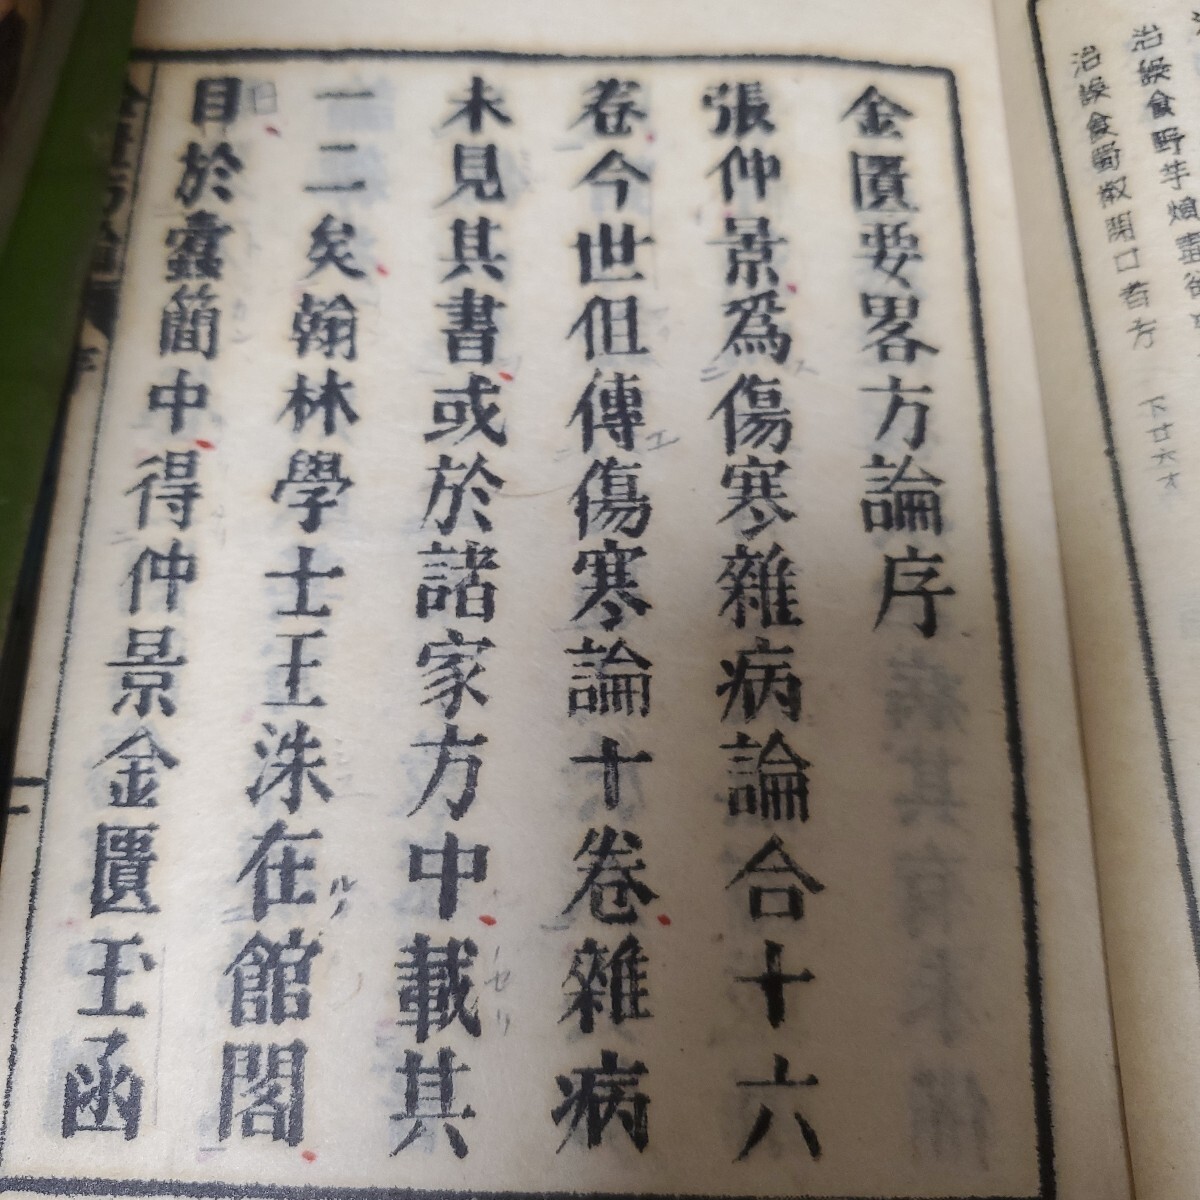 治誤食野芋煩
治誤食蜀椒閉口者方
下廿六才
金匱要畧方論序
張仲景爲傷寒雜病論合十六
卷今世但傳傷寒論十卷雜病
未見其書或於諸家方中載其
一二矣翰林學士王洙在館閣
日於蠹簡中得仲景金匱玉函